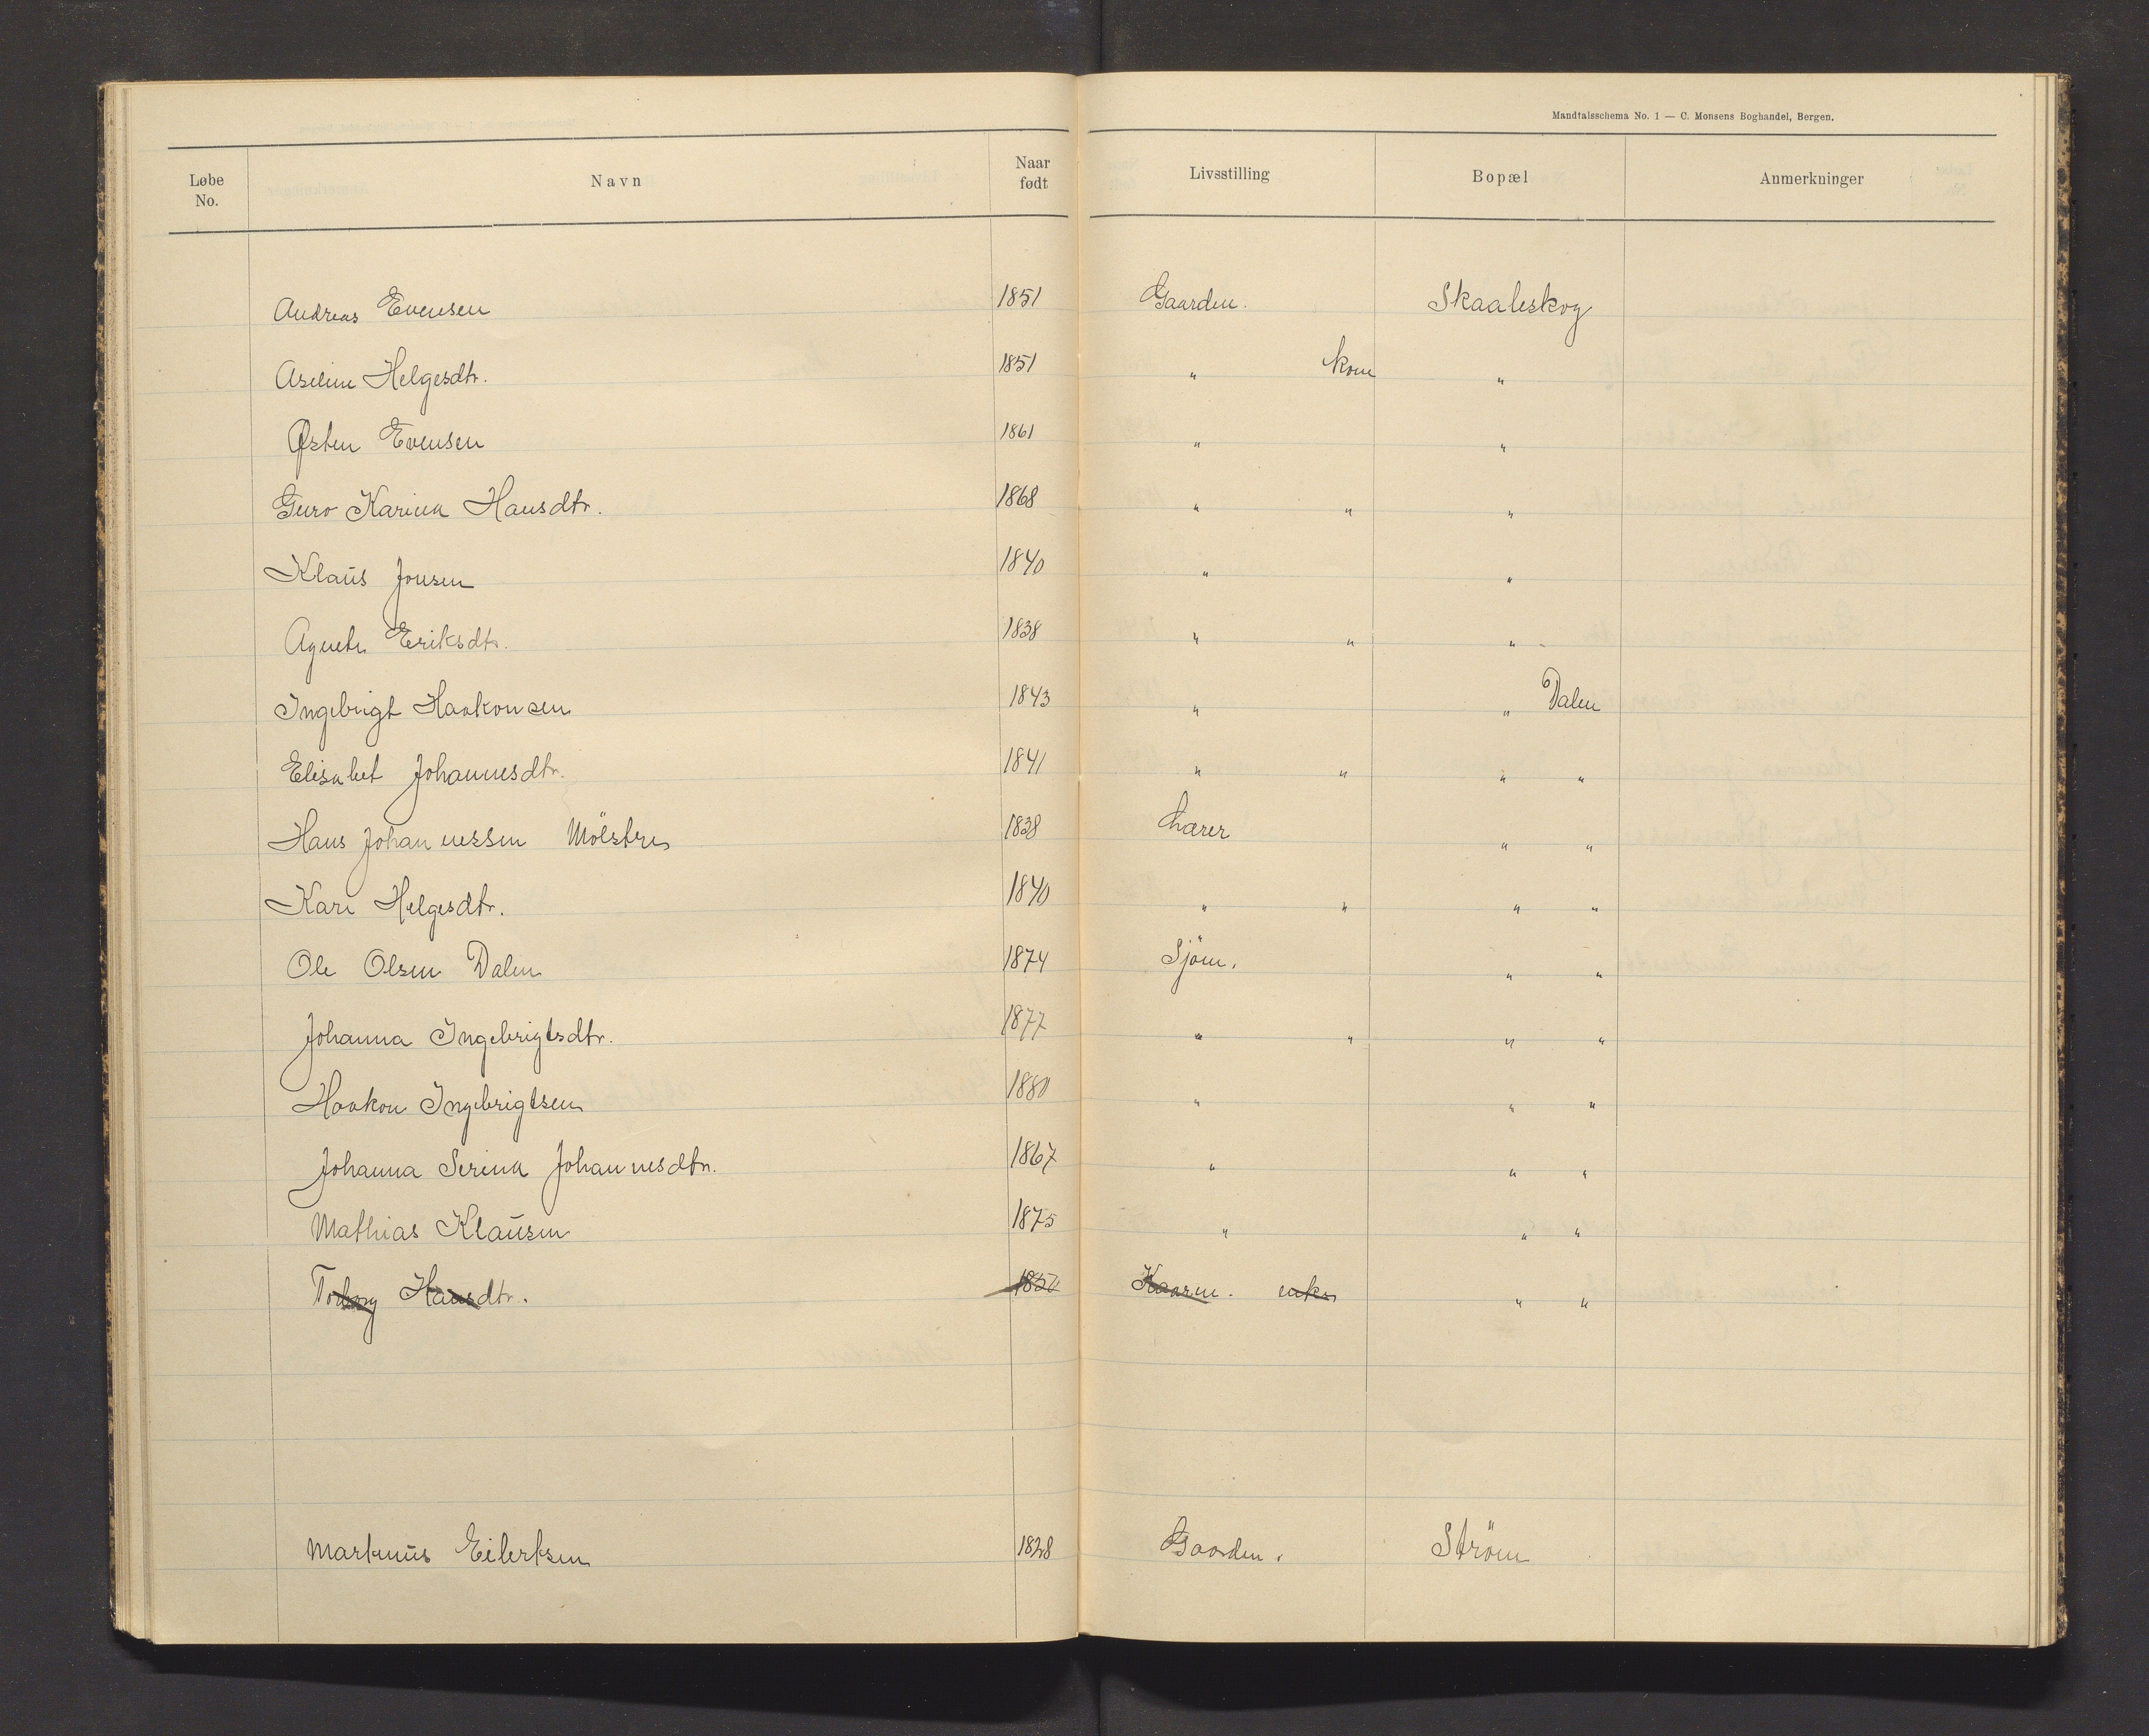 Mandtalsschema No. 1 — C. Monsens Boghandel, Bergen.
Løbe No. Navn Naar født Livsstilling Bopæl Anmerkninger
Andreas Evensen 1851 Gaardm. Skaaleskog
Aseline Helgesdtr. 1851 " kone "
Østen Evensen 1861 " "
Guro Karina Hansdtr. 1868 " " "
Klaus Jonsen 1840 " "
Agnete Eriksdtr. 1838 " " "
Ingebrigt Haakonsen 1843 " " Dalen
Elisabet Johannesdtr. 1841 " " " "
Hans Johannessen Mölstre 1838 Lærer " "
Kari Helgesdtr. 1840 " " " "
Ole Olsen Dalen 1874 Sjöm. " "
Johanna Ingebrigtsdtr. 1877 " " " "
Haakon Ingebrigtsen 1880 " " "
Johanna Serina Johannesdtr. 1867 " " "
Mathias Klausen 1875 " " "
Torborg Hansdtr. Kaarm. enke " "
Marknus Eilertsen 1828 Gaardm. Ström